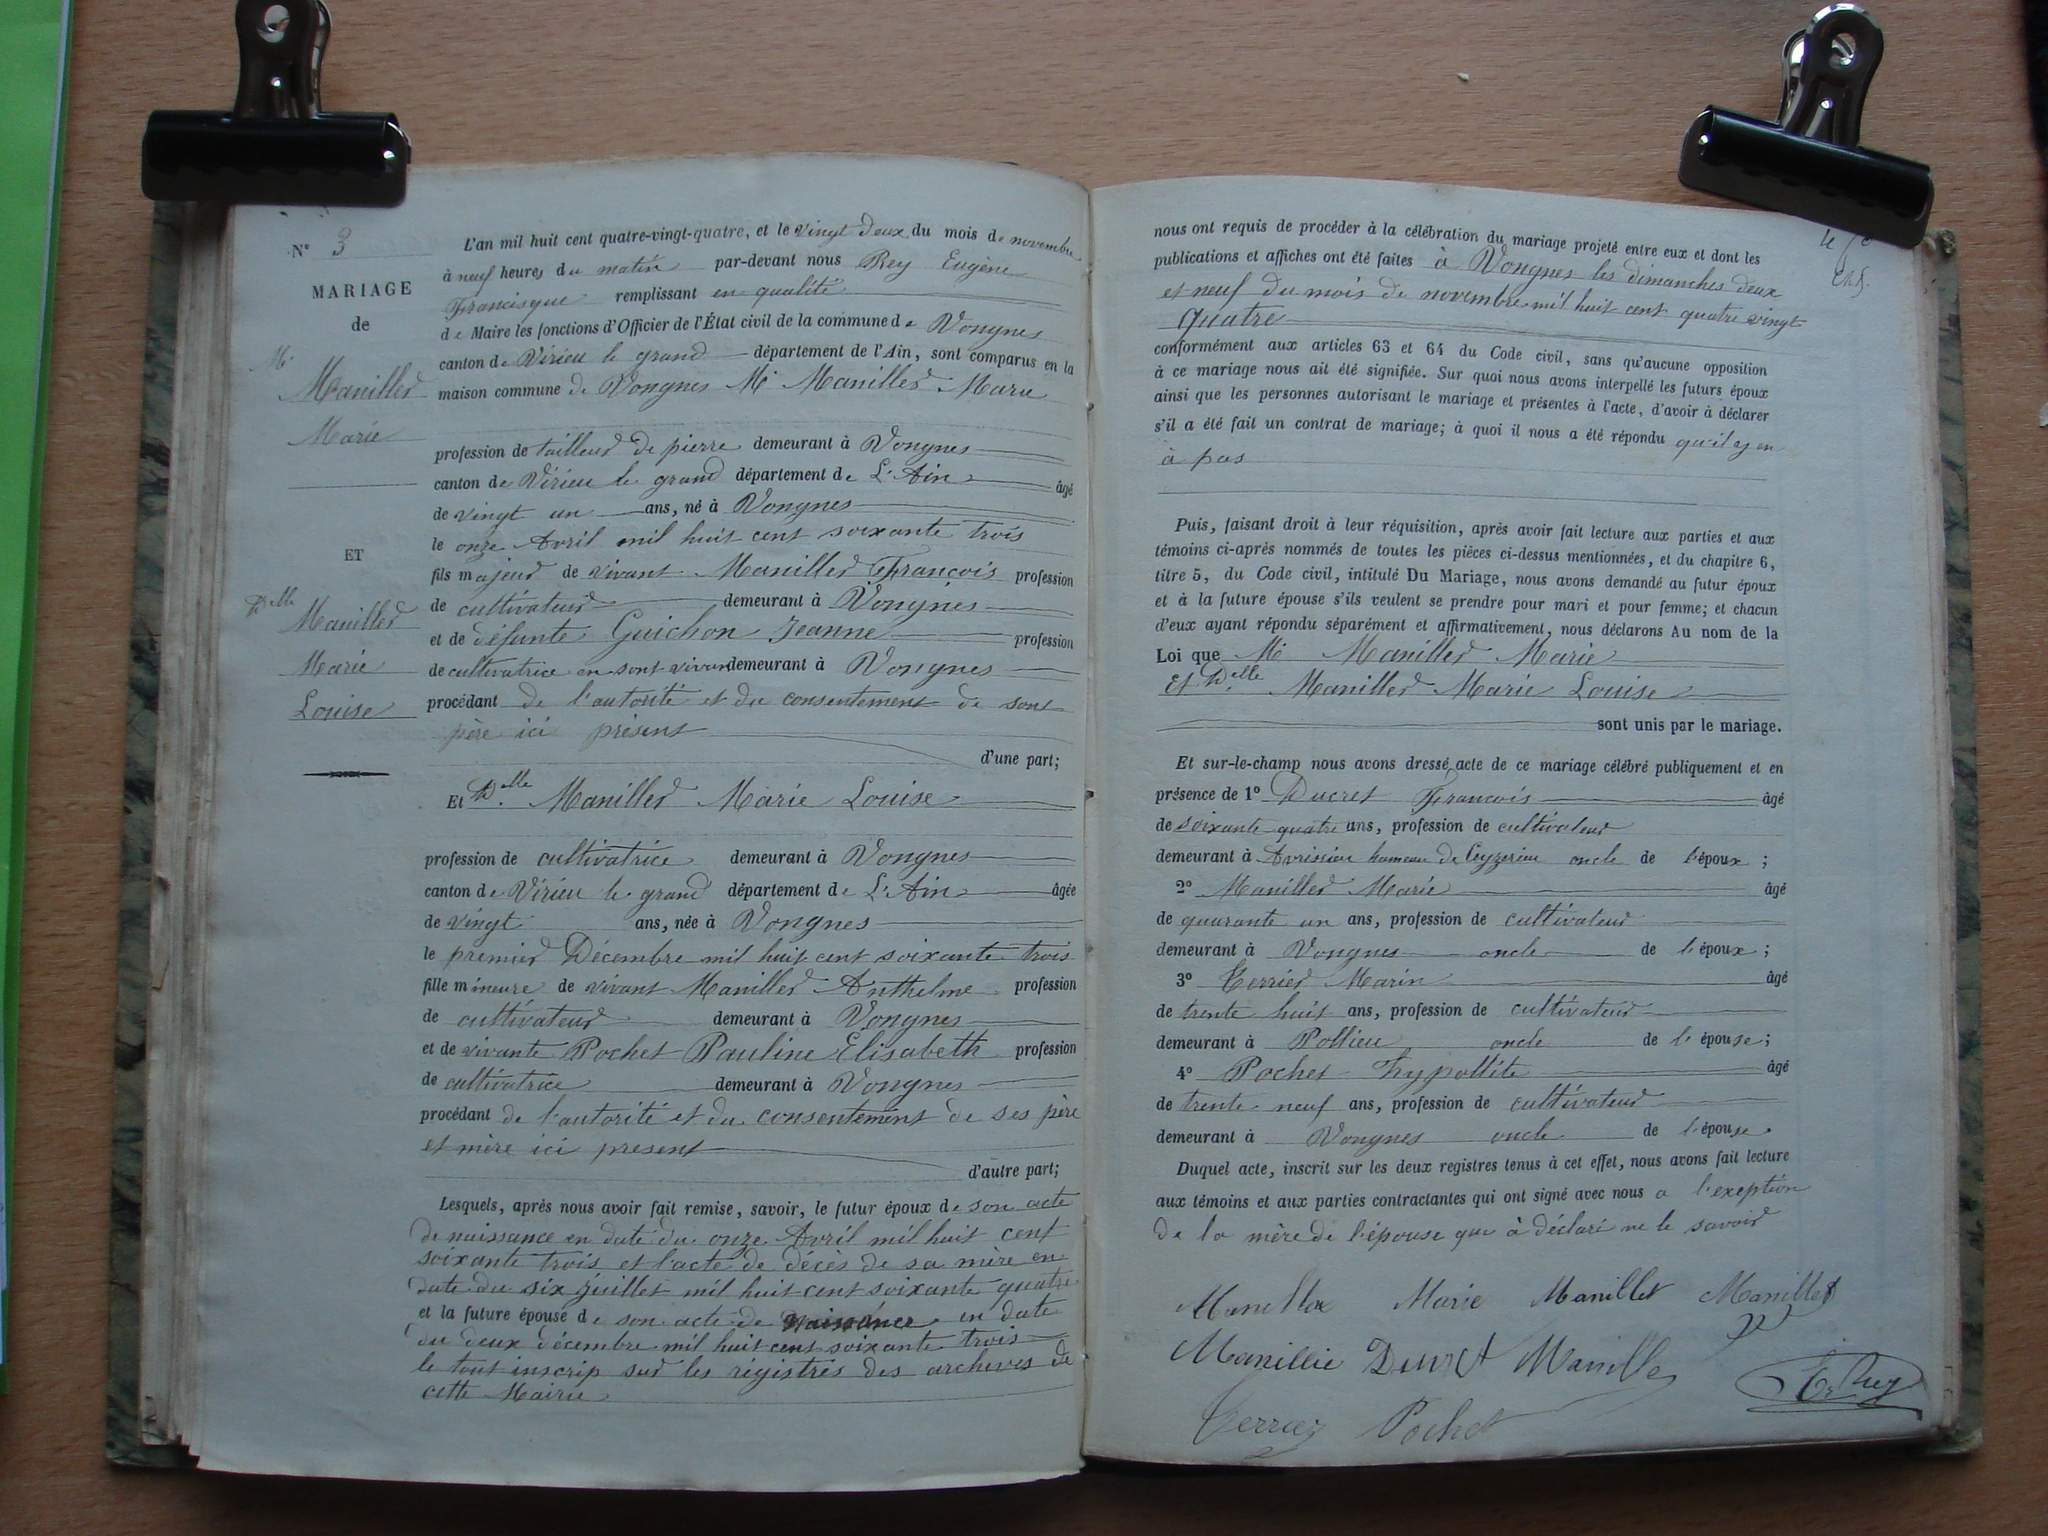 N° 3
MARIAGE
de
Mr
Manillier
Marie
ET
Delle
Manillier
Marie
Louise
L'an mil huit cent quatre-vingt-quatre, et le vingt deux du mois de novembre
à neuf heures du matin par-devant nous Rey Eugène
Francisque remplissant en qualité
de Maire les fonctions d'Officier de l'État civil de la commune de Vongnes
canton de Virieu le grand département de l'Ain, sont comparus en la
maison commune de Vongnes Mr Manillier Marie
profession de tailleur de pierre demeurant à Vongnes
canton de Virieu le grand département de L'Ain âgé
de vingt un ans, né à Vongnes
le onze Avril mil huit cent soixante trois
fils majeur de vivant Manillier François profession
de cultivateur demeurant à Vongnes
et de défunte Guichon Jeanne profession
de cultivatrice en sont vivant demeurant à Vongnes
procédant de l'autorité et du consentement de sont
père ici présent
d'une part;
Et Delle Manillier Marie Louise
profession de cultivatrice demeurant à Vongnes
canton de Virieu le grand département de L'Ain âgée
de vingt ans, née à Vongnes
le premier Décembre mil huit cent soixante trois
fille mineure de vivant Manillier Anthelme profession
de cultivateur demeurant à Vongnes
et de vivante Pochet Pauline Elisabeth profession
de cultivatrice demeurant à Vongnes
procédant de l'autorité et du consentement de ses père
et mère ici present
d'autre part;
Lesquels, après nous avoir fait remise, savoir, le futur époux de son acte
de naissance en date du onze Avril mil huit cent
soixante trois et l'acte de décès de sa mère en
date du six juillet mil huit cent soixante quatre
et la future épouse de son acte de naissance en date
du deux décembre mil huit cent soixante trois
le tout inscrip sur les régistres des archives de
cette Mairie
nous ont requis de procéder à la célébration du mariage projeté entre eux et dont les
publications et affiches ont été faites à Vongnes les dimanches deux
et neuf du mois de novembre mil huit cent quatre vingt
quatre
conformément aux articles 63 et 64 du Code civil, sans qu'aucune opposition
à ce mariage nous ait été signifiée. Sur quoi nous avons interpellé les futurs époux
ainsi que les personnes autorisant le mariage et présentes à l'acte, d'avoir à déclarer
s'il a été fait un contrat de mariage; à quoi il nous a été répondu qu'il y en
à pas
Puis, faisant droit à leur réquisition, après avoir fait lecture aux parties et aux
témoins ci-après nommés de toutes les pièces ci-dessus mentionnées, et du chapitre 6,
titre 5, du Code civil, intitulé Du Mariage, nous avons demandé au futur époux
et à la future épouse s'ils veulent se prendre pour mari et pour femme; et chacun
d'eux ayant répondu séparément et affirmativement, nous déclarons Au nom de la
Loi que Mr Manillier Marie
et Delle Manillier Marie Louise
sont unis par le mariage.
Et sur-le-champ nous avons dressé acte de ce mariage célébré publiquement et en
présence de 1° Ducret François âgé
de soixante quatre ans, profession de cultivateur
demeurant à hameau de Ceyzerieu oncle de l'époux;
2° Manillier Marie âgé
de quarante un ans, profession de cultivateur
demeurant à Vongnes oncle de l'époux;
3° Terrier Marin âgé
de trente huit ans, profession de cultivateur
demeurant à Pollieu oncle de l'épouse;
4° Pochet hypollite âgé
de trente neuf ans, profession de cultivateur
demeurant à Vongnes oncle de l'épouse.
Duquel acte, inscrit sur les deux registres tenus à cet effet, nous avons fait lecture
aux témoins et aux parties contractantes qui ont signé avec nous a l'exeption
de la mère de l'épouse que à déclaré ne le savoir
Marie Manillet Manillet
Manillie Ducret Manille
Pochet